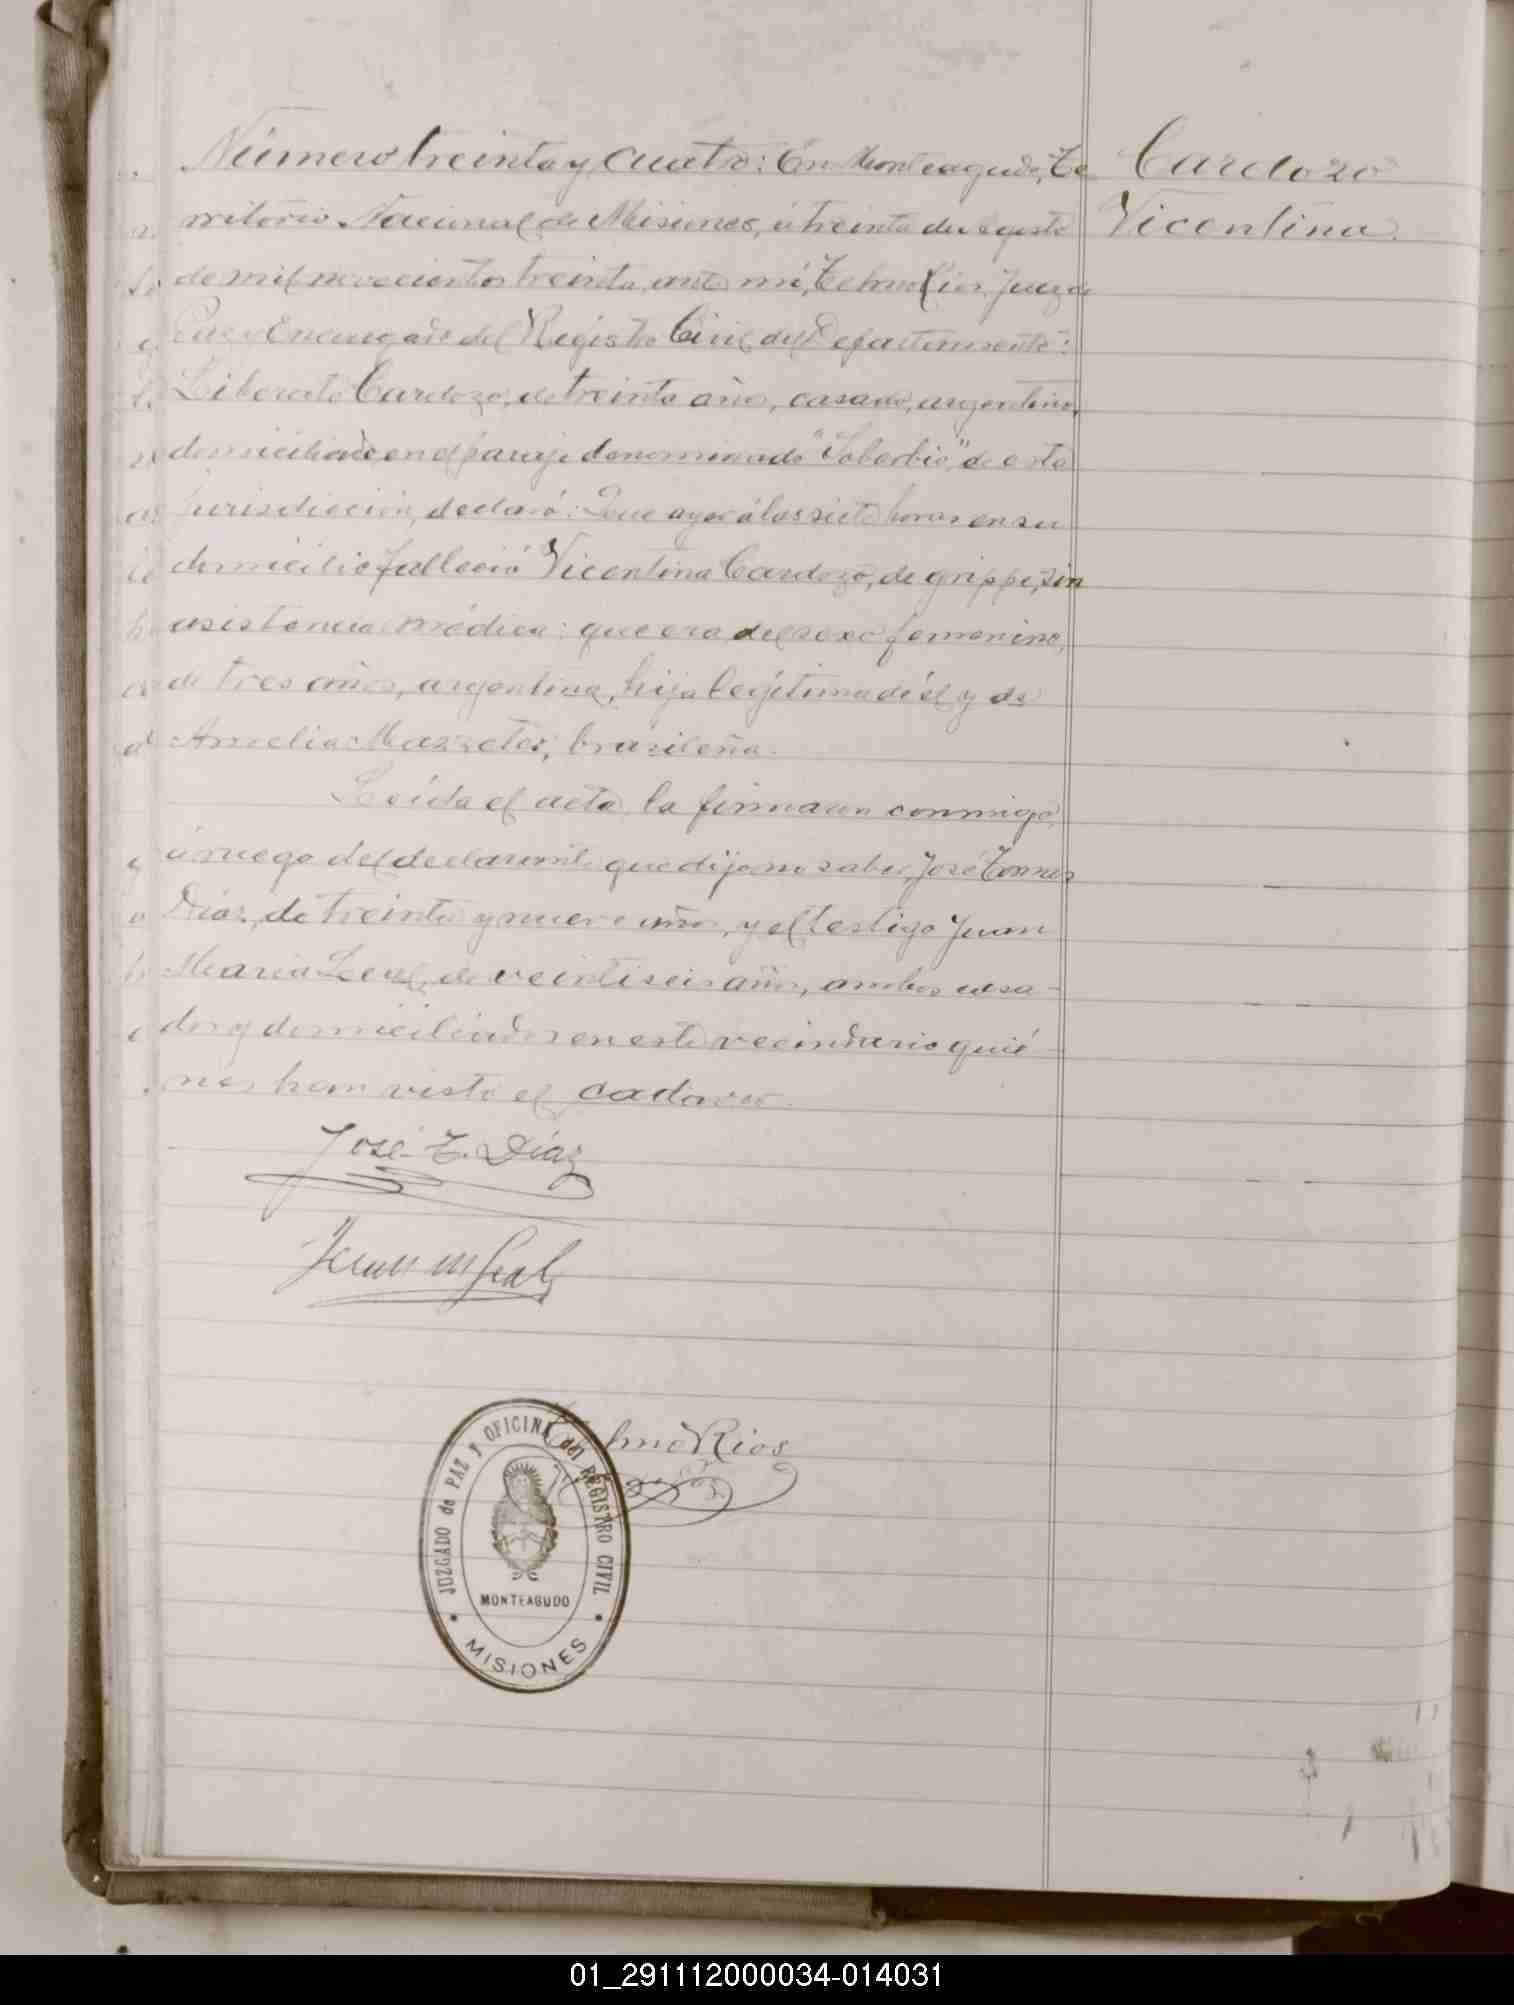 Número treinta y cuatro: En Monteagudo, Te
rritorio Nacional de Misiones, á treinta de agosto
de mil novecientos treinta, ante mí, Telmo Rios, Juez de
Paz y Encargado del Registro Civil del Departamento:
Liberato Cardozo, de treinta años, casado, argentino,
domiciliado en el paraje denominado "Soberbio", de esta
jurisdicción, declaró: Que ayer á las siete horas en su
domicilio falleció Vicentina Cardozo, de grippe, sin
asistencia médica: que era del sexo femenino,
de tres años, argentina, hija legítima de él y de
Amelia, brasileña.
Leída el acta, la firmaron conmigo,
á ruego del declarante que dijo no saber, José Tomas
Díaz, de treinta y nueve años, y el testigo Juan
María Leal, de veintiseis años, ambos casa-
dos y domiciliados en este vecindario quié-
nes han visto el cadaver.
Cardozo
Vicentina.
José T. Díaz
Juan M Leal
Telmo Rios
JUZGADO de PAZ y OFICINA del REGISTRO CIVIL
MONTEAGUDO
MISIONES
01_291112000034-014031